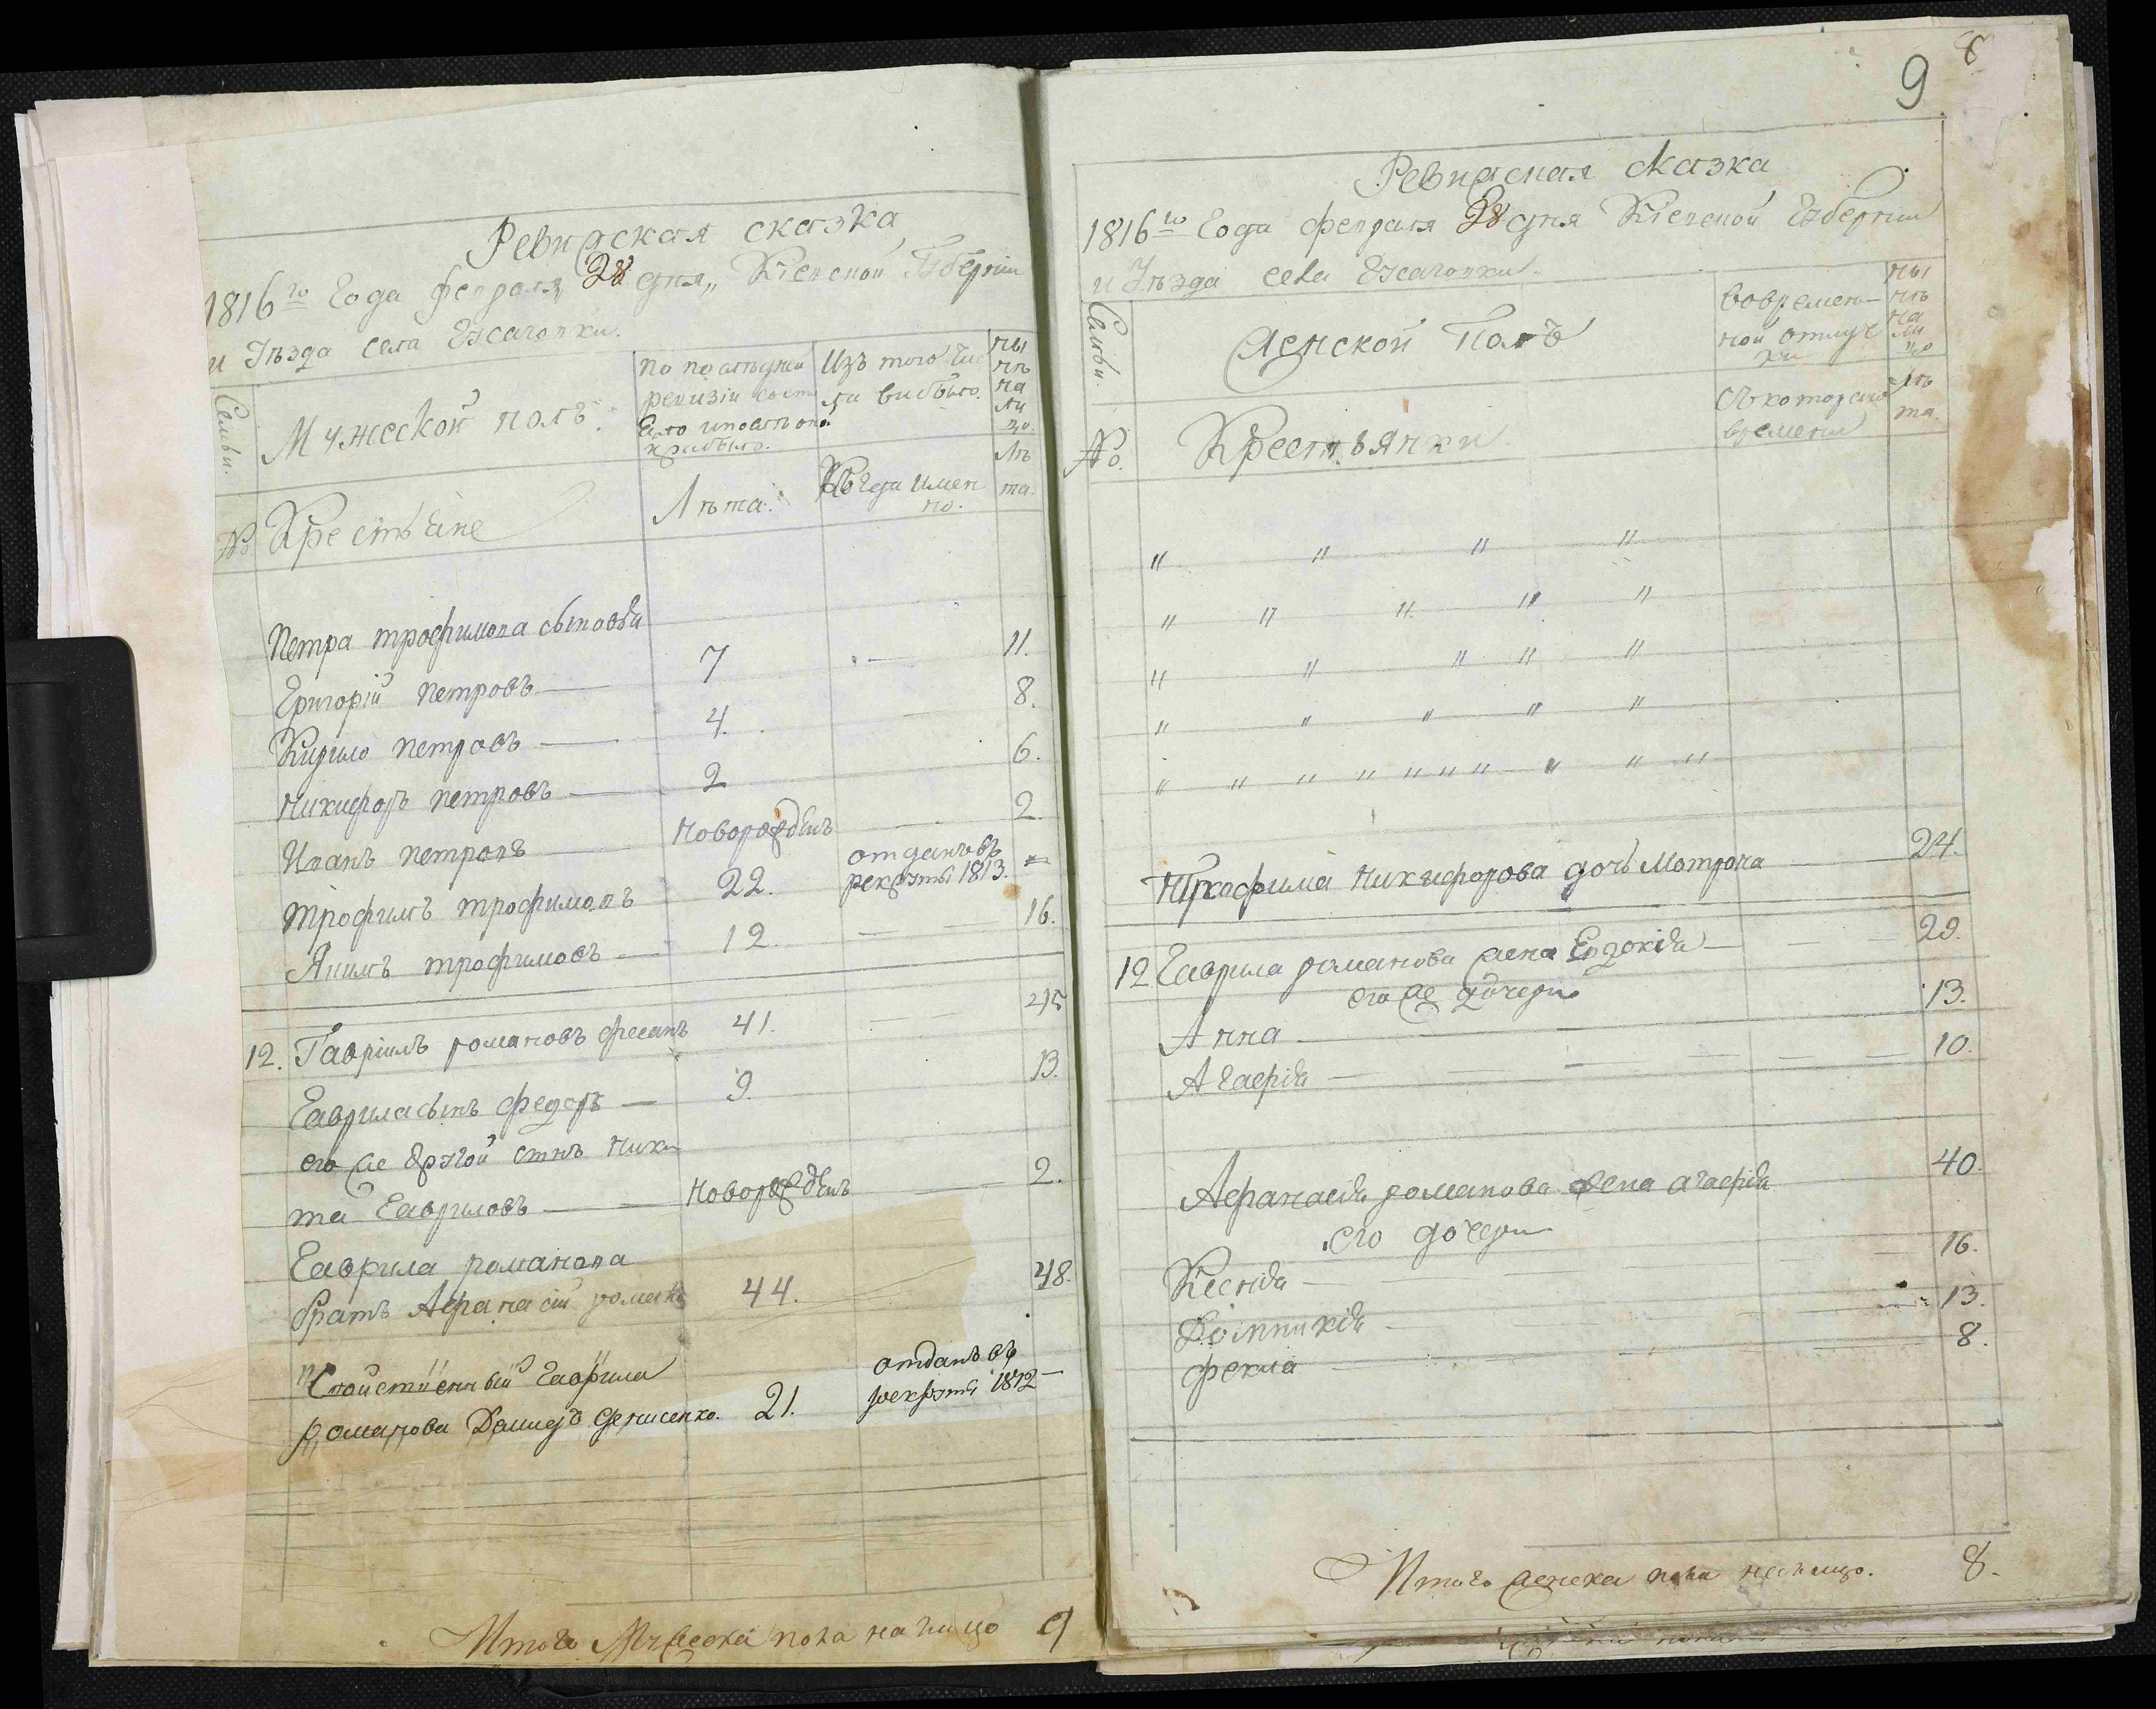 Ревизская сказка
1816го года февраля 28 дня, Киевской Губернии
и Уѣзда села
Семьи.
Мужеской полъ.
по послѣдней
ревизіи состо
яло и послѣ оной
прибыло.
Изъ того чис
ла выбыло.
ны
нѣ
на
ли
цо.
№
Крестьяне
Лѣта.
Когда имен
но.
Лѣ
та.
Петра трофимова сыновья
Григорій петровъ 7 11.
Кирило петровъ 4. 8.
Никифоръ петровъ 2 6.
Иванъ петровъ новорожденъ 2
трофимъ трофимовъ 22. отданъ въ рекруты 1813.
Якимъ трофимовъ 12. 16.
12. Гавріилъ романовъ 41. 45
Гаврила сынъ федоръ 9. 13.
его же другой сынъ Ники
та Гавриловъ новорожденъ 2.
Гаврила романова
братъ Афанасій романовъ 44. 48.
Свойственный Гаврила отданъ въ
романова Демидъ 21. рекруты 1812
Итого Мужеска пола на лицо 9
8
9
Ревизская сказка
1816го года февраля 28 дня Киевской Губернии
и Уѣзда села
Семьи.
Женской Полъ
вовремен-
ной отлуч
ки
ны
нѣ
на
ли
цо
№.
Крестьянки
Съ котораго
времени
лѣ
та.
" " " "
" " " " "
" " " " "
" " " " "
" " " " " " " " " "
Трофима Никифорова дочь Мотрона 24.
12 Гаврила романова жена Евдокія 29.
его же дочери
Анна 13.
Агафія 10.
Афанасія романова жена агафія 40.
его дочери
Ксенія 16.
Домникія 13.
фекла 8.
Итого женска пола налицо. 8.